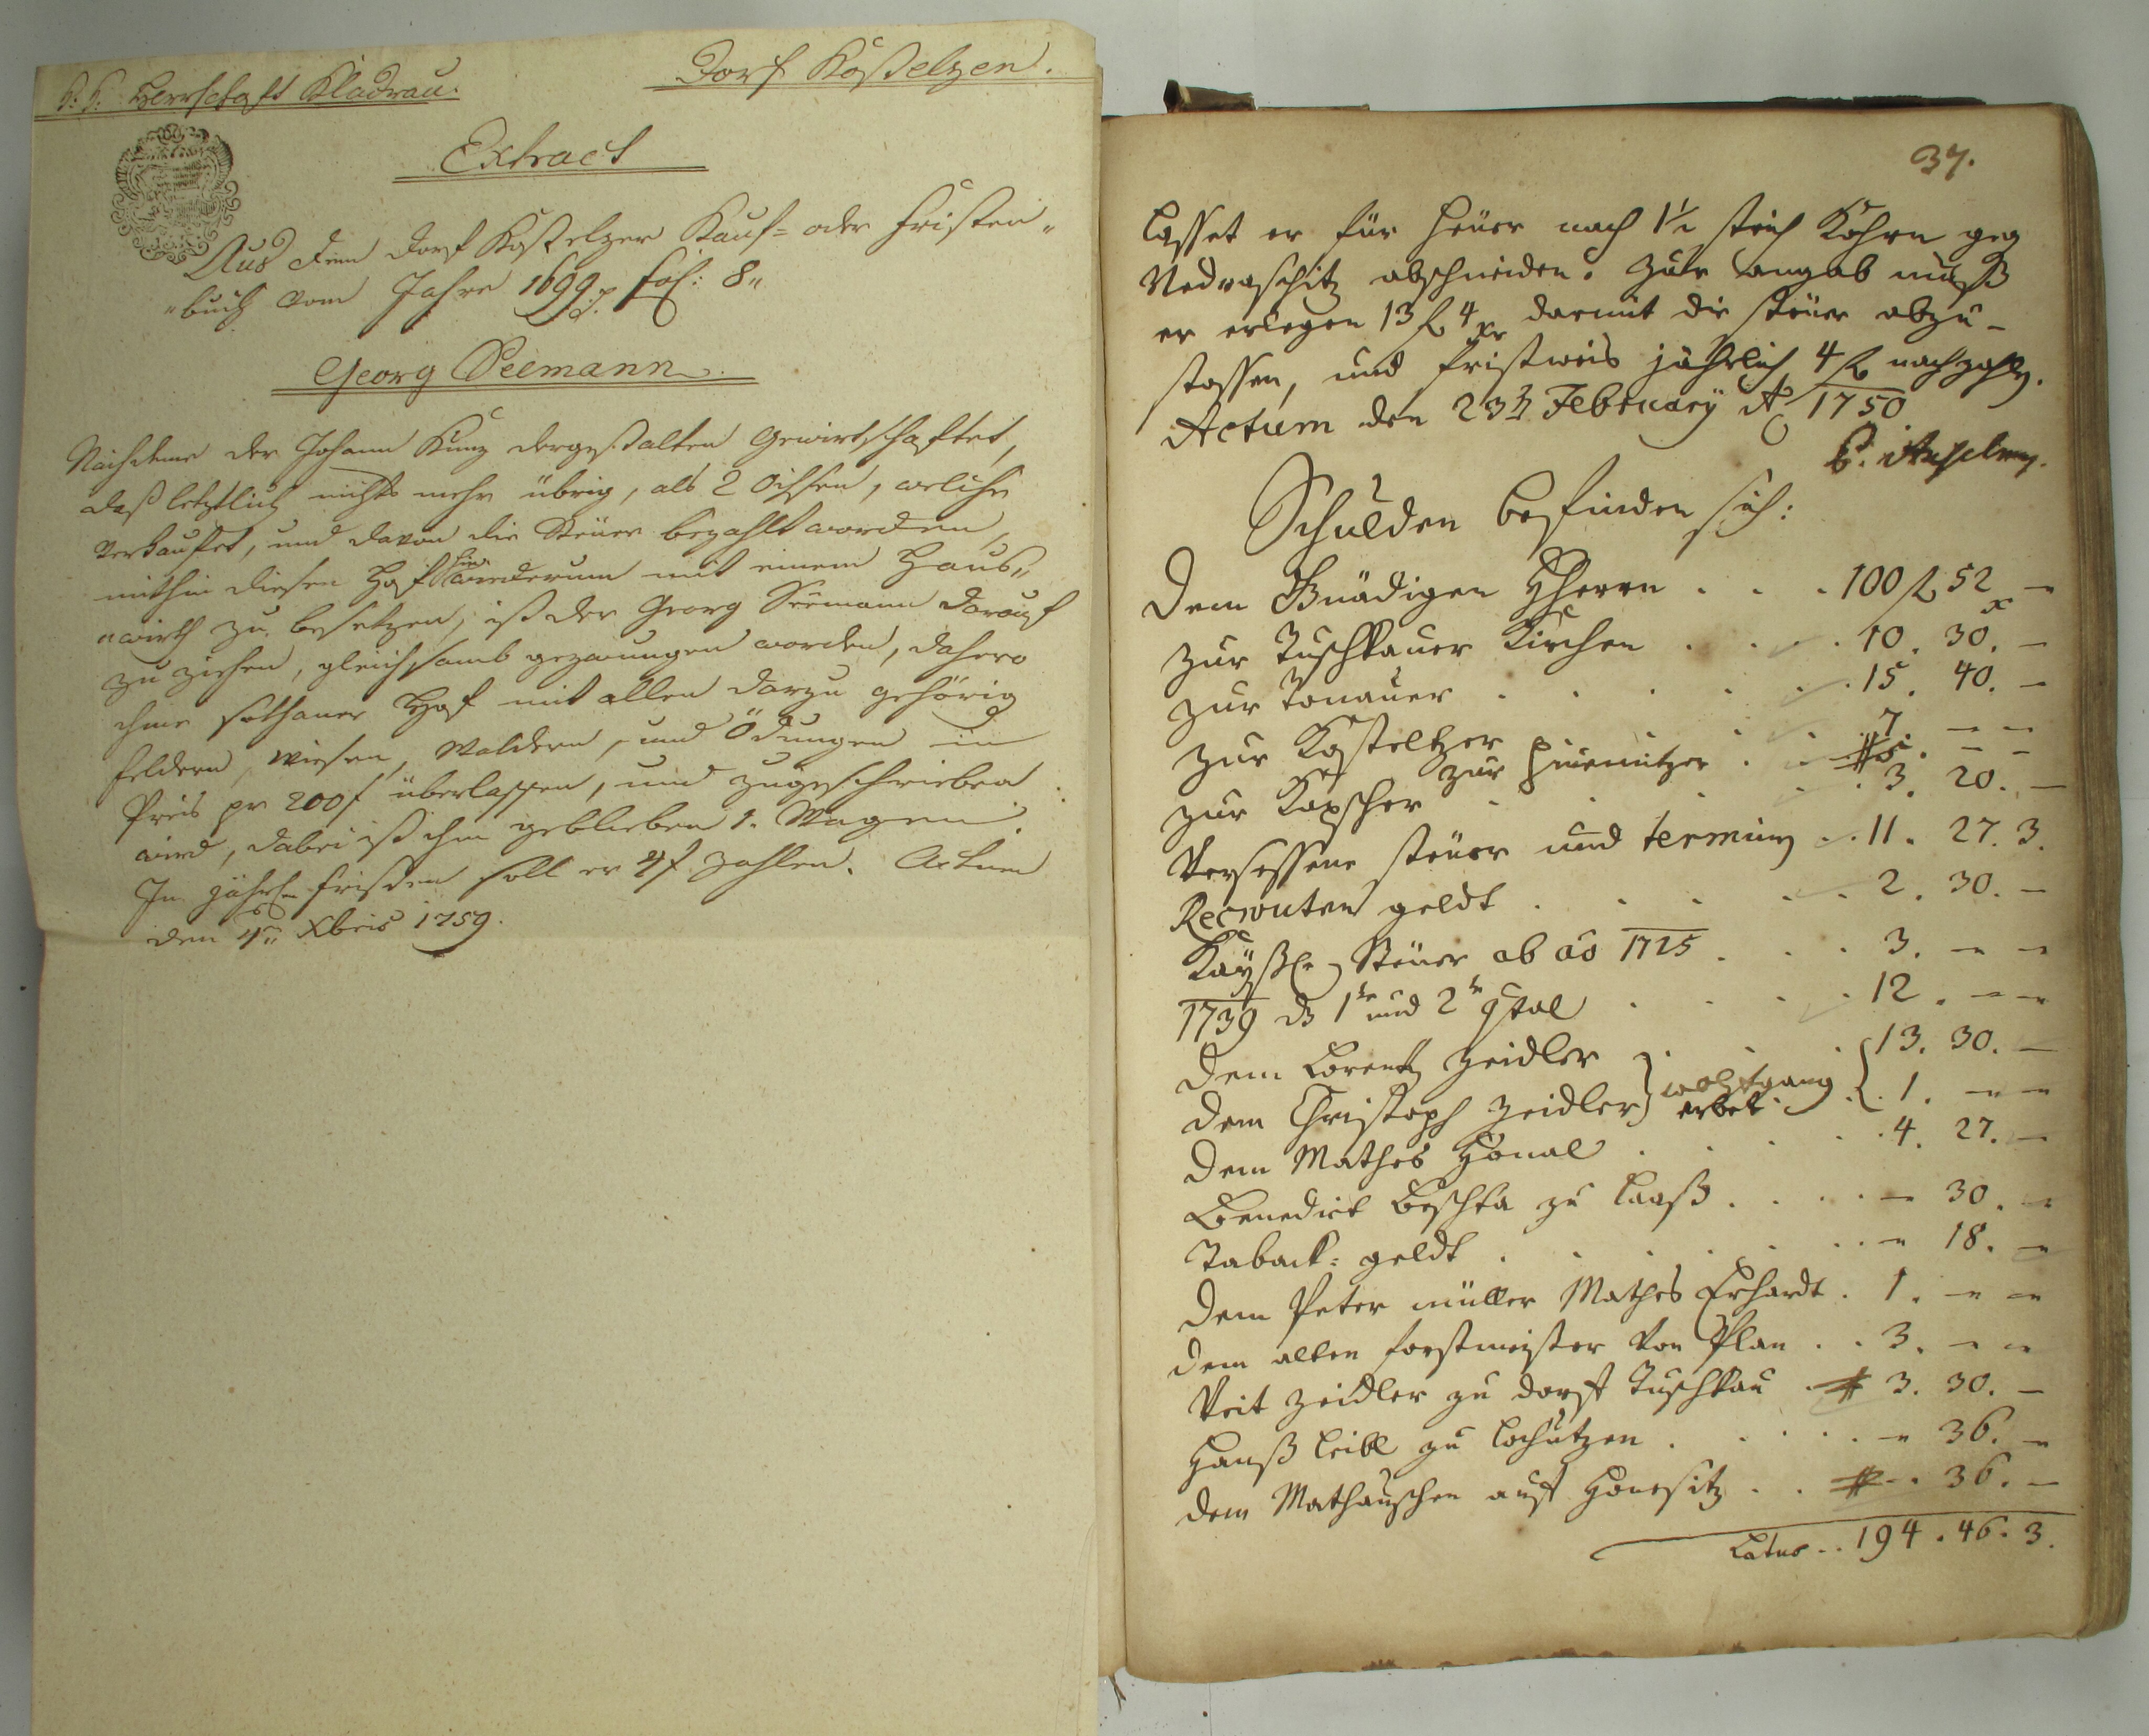 K: K: Herrschaft Kladrau.
Dorf Kostelzen.
Extract
Aus dem Dorf Kostelzer Kauf= oder Fristen„
„buch vom Jahre 1699. fol: 8„
Georg Seemann
Nachdeme der Johann Kunz dergestalten gewirtschaftet,
daß letztlich nichts mehr übrig, als 2 Ochsen, welche
verkauffet, und davon die Steuer bezahlt worden,
mithin diesen Hof hinwiederum mit einem Haus„
„wirth zu besetzen, ist der Georg Seemann darauf
zu ziehen, gleichsamb gezwungen worden, dahero
ihme sothaner Hof mit allen darzu gehörig
Feldern, Wiesen, Waldern, und Ödungen in
Preis pr 200 f überlassen, und zugeschrieben
wird, dabei ist ihm geblieben 1. Wagen.
In jährl. Fristen soll er 4 f zahlen. Actum
den 4ten Xbris 1759.
37.
lasset er für heuer nach 1½ strich Kohrn geg
Nedraschitz abschneiden. Zur angab muß
er erlegen 13 f 4 xr darmit die steuer abzu-
stossen, und fristweis jährlich 4 f nachzahlen.
Actum den 23ten February Ao 1750
Schulden befinden sich:
Dem Gnädigen Herrn . . . 100 f 52 x —
zur Tuschkauer Kirchen . . . 10. 30. —
zur Tonauer . . . 15. 40. —
zur Kosteltzer . . . 7. — —
zur . . . 5. — —
zur Kapscher . . . 3. 20. —
Versessene steuer und terminen . . 11. 27. 3.
Recrouten geldt . . . 2. 30. —
Kaÿßl. Steuer ab ao 1725 . . . 3. — —
1739 1te und 2te qtal . . . 12. — —
Dem Lorentz Zeidler . . . 13. 30. —
Dem Christoph Zeidler } wolfgang erbet . . 1. — —
Dem Mathes Honal . . . 4. 27. —
Benedict Beschta zu Laaß . . . — 30. —
Taback= geldt . . . — 18. —
Dem Peter müller Mathes Erhardt . 1. — —
Dem alten forstmeister von Plan . . 3. — —
Veit Zeidler zu dorff Tuschkau . 3. 30. —
Hanß Leibl zu Lochutzen . . . — 36. —
Dem Mathauschen auff Honositz . . — 36. —
Latus . . 194. 46. 3.